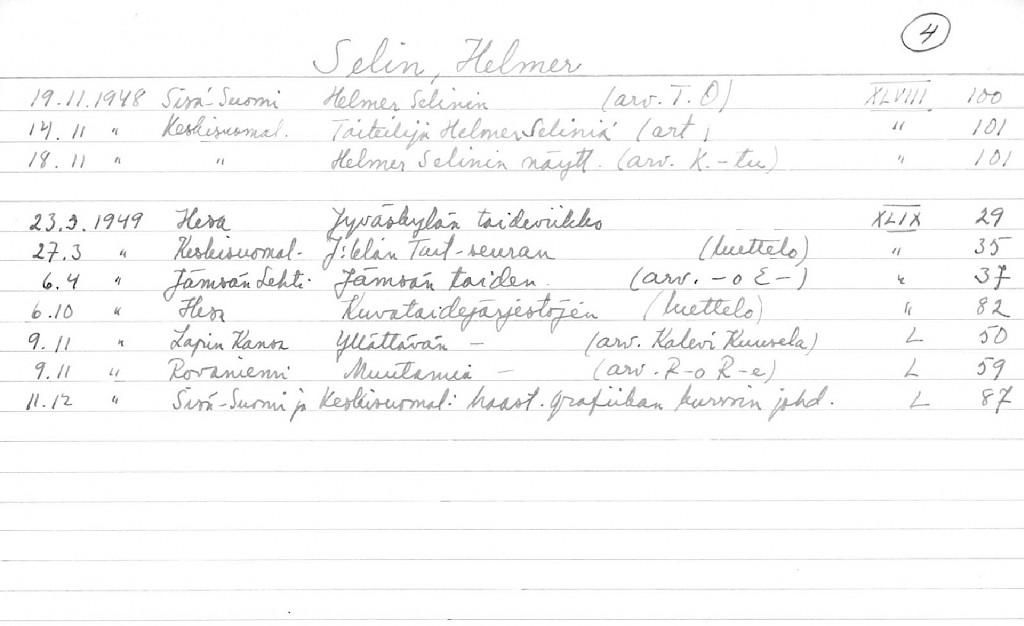 4
Selin, Helmer
19.11.1948 Sisä-Suomi Helmer Selinin (arv. T. O) XLVIII 100
14.11 " Keskisuomal. Taiteilija Helmer Seliniä (art) " 101
18.11 " " Helmer Selinin näytt. (arv. K.-tu) " 101
23.3.1949 Hesa Jyväskylän taideviikko XLIX 29
27.3 " Keskisuomal. J:kylän Tait-seuran (luettelo) " 35
6.4 " Jämsän Lehti Jämsän taiden. (arv. -o E-) " 37
6.10 " Hesa Kuvataidejärjestöjen (luettelo) " 82
9.11 " Lapin Kansa Yllättävän - (arv. Kalevi Kuusela) L 50
9.11 " Rovaniemi Muutamia - (arv. R-o R-e) L 59
11.12 " Sisä-Suomi ja Keskisuomal: haast. grafiikan kurssin johd. L 87